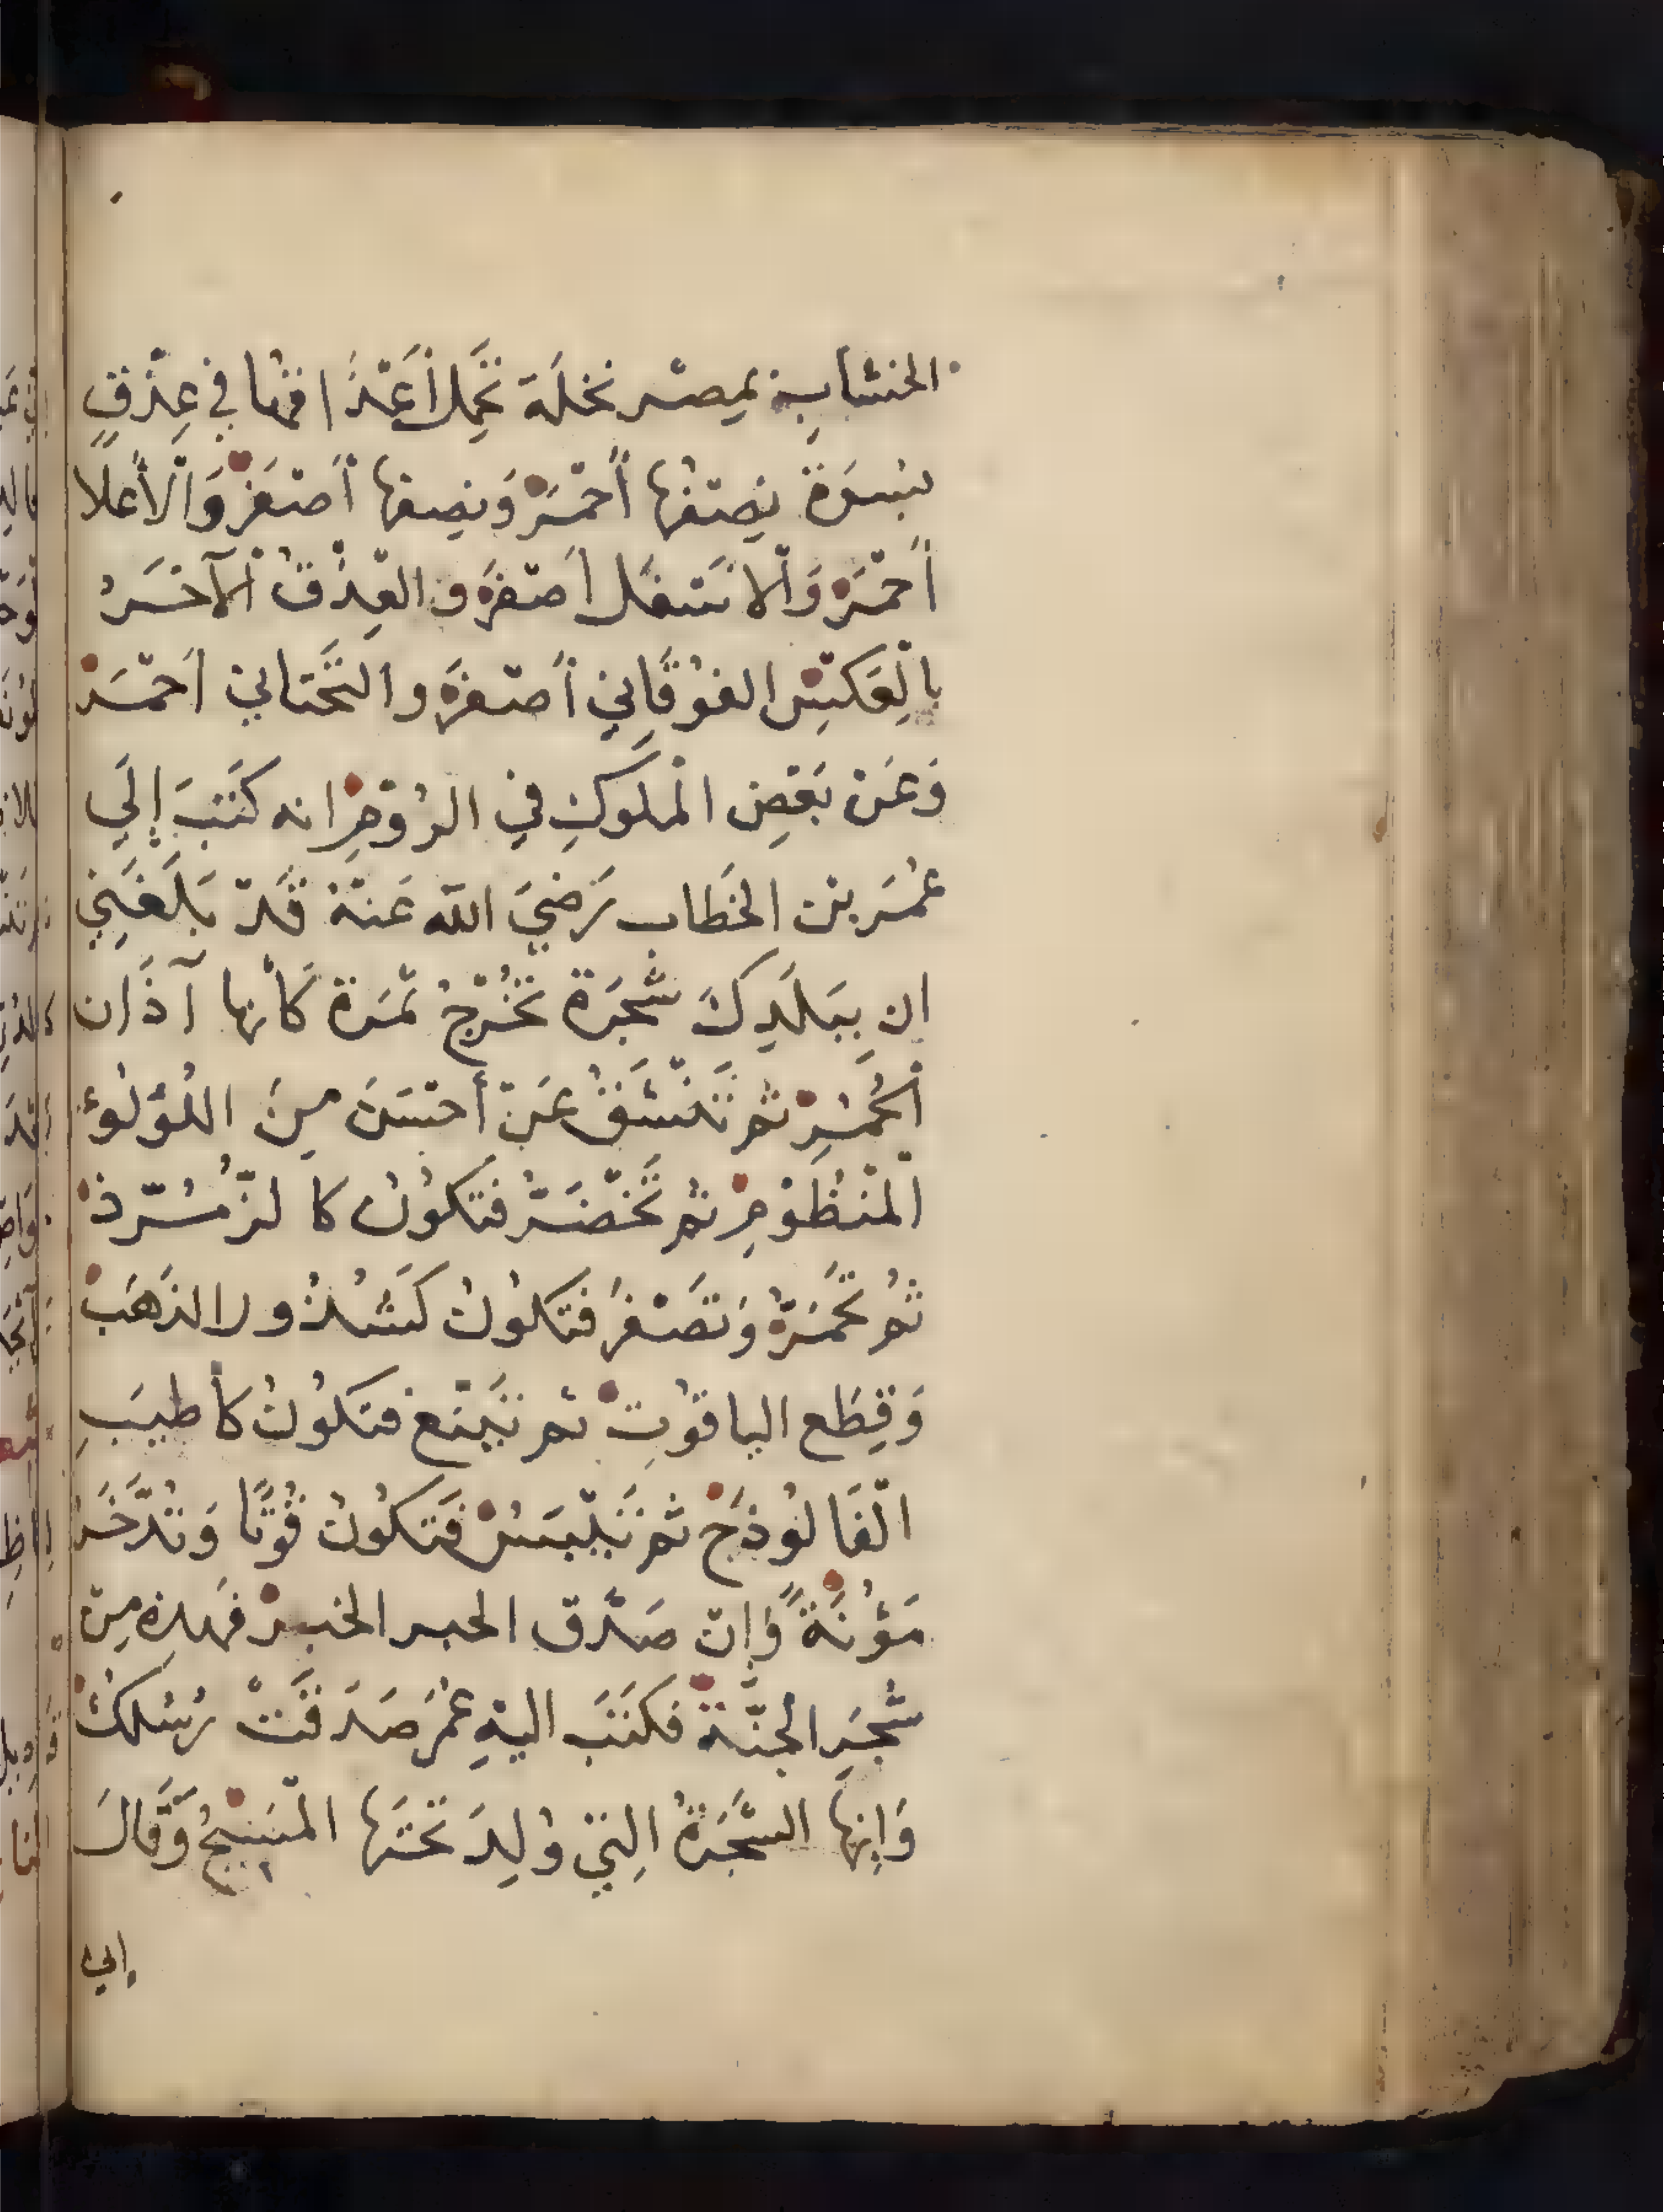 الخشابية بمصر نخلَة تَحْمِل أَعْذَاقها في عِذْقٍ
بُسرَة نِصْفُها أَحْمَر وَنِصفها أَصْفَر وَالْأَعلا
أَحْمَر وَالْاسْفَل أَصْفَر و العِذْق الْآخَرُ
بِالْعَكْسِ الفَوْقَاني أَصْفَر و التَّحْتَاني أَحْمَر
وَعَنْ بَعْضِ الْملوكِ فِي الرُوْمِ انه كَتَبَ إلَي
عُمَر بْن الخَطاب رَضيَ الله عَنْهُ قَدْ بَلَغَنِي
ان بِبَلَدِكَ شَجَرَة تَخْرُجُ ثَمَرَة كَأنها آذَان
الْحُمُرِ ثم تَنْشَقُّ عَنْ أَحْسَنَ مِنَ اللُؤْلُؤِ
الْمَنْظُوْمِ ثم تَخْضَرُّ فَتكُونُ كا لزُّمُرّذ
ثُم تَحْمَرُّ وَتَصْفَرُ فَتكُونُ كَشُذُور الذَهَب
وَقِطَع الياقوُتِ ثم تَيْنَع فتكُونُ كأَطيَبِ
الْفَالُوذَج ثم تَيْبَسُ فَتَكُونُ قُوْتًا وَتُدَّخَرُ
مَؤُنَةً وَإنْ صَدَق الخبر الخبر فهذِه مِنْ
شَجَرِ الجنَّة فكَتَبَ اليْهِ عُمَر صَدَقَتْ رُسُلكَ
وَإنها الشَّجَرَةُ التِي وُلِدَ تَحْتَها الْمَسِيْحُ وَّقَالَ
إني